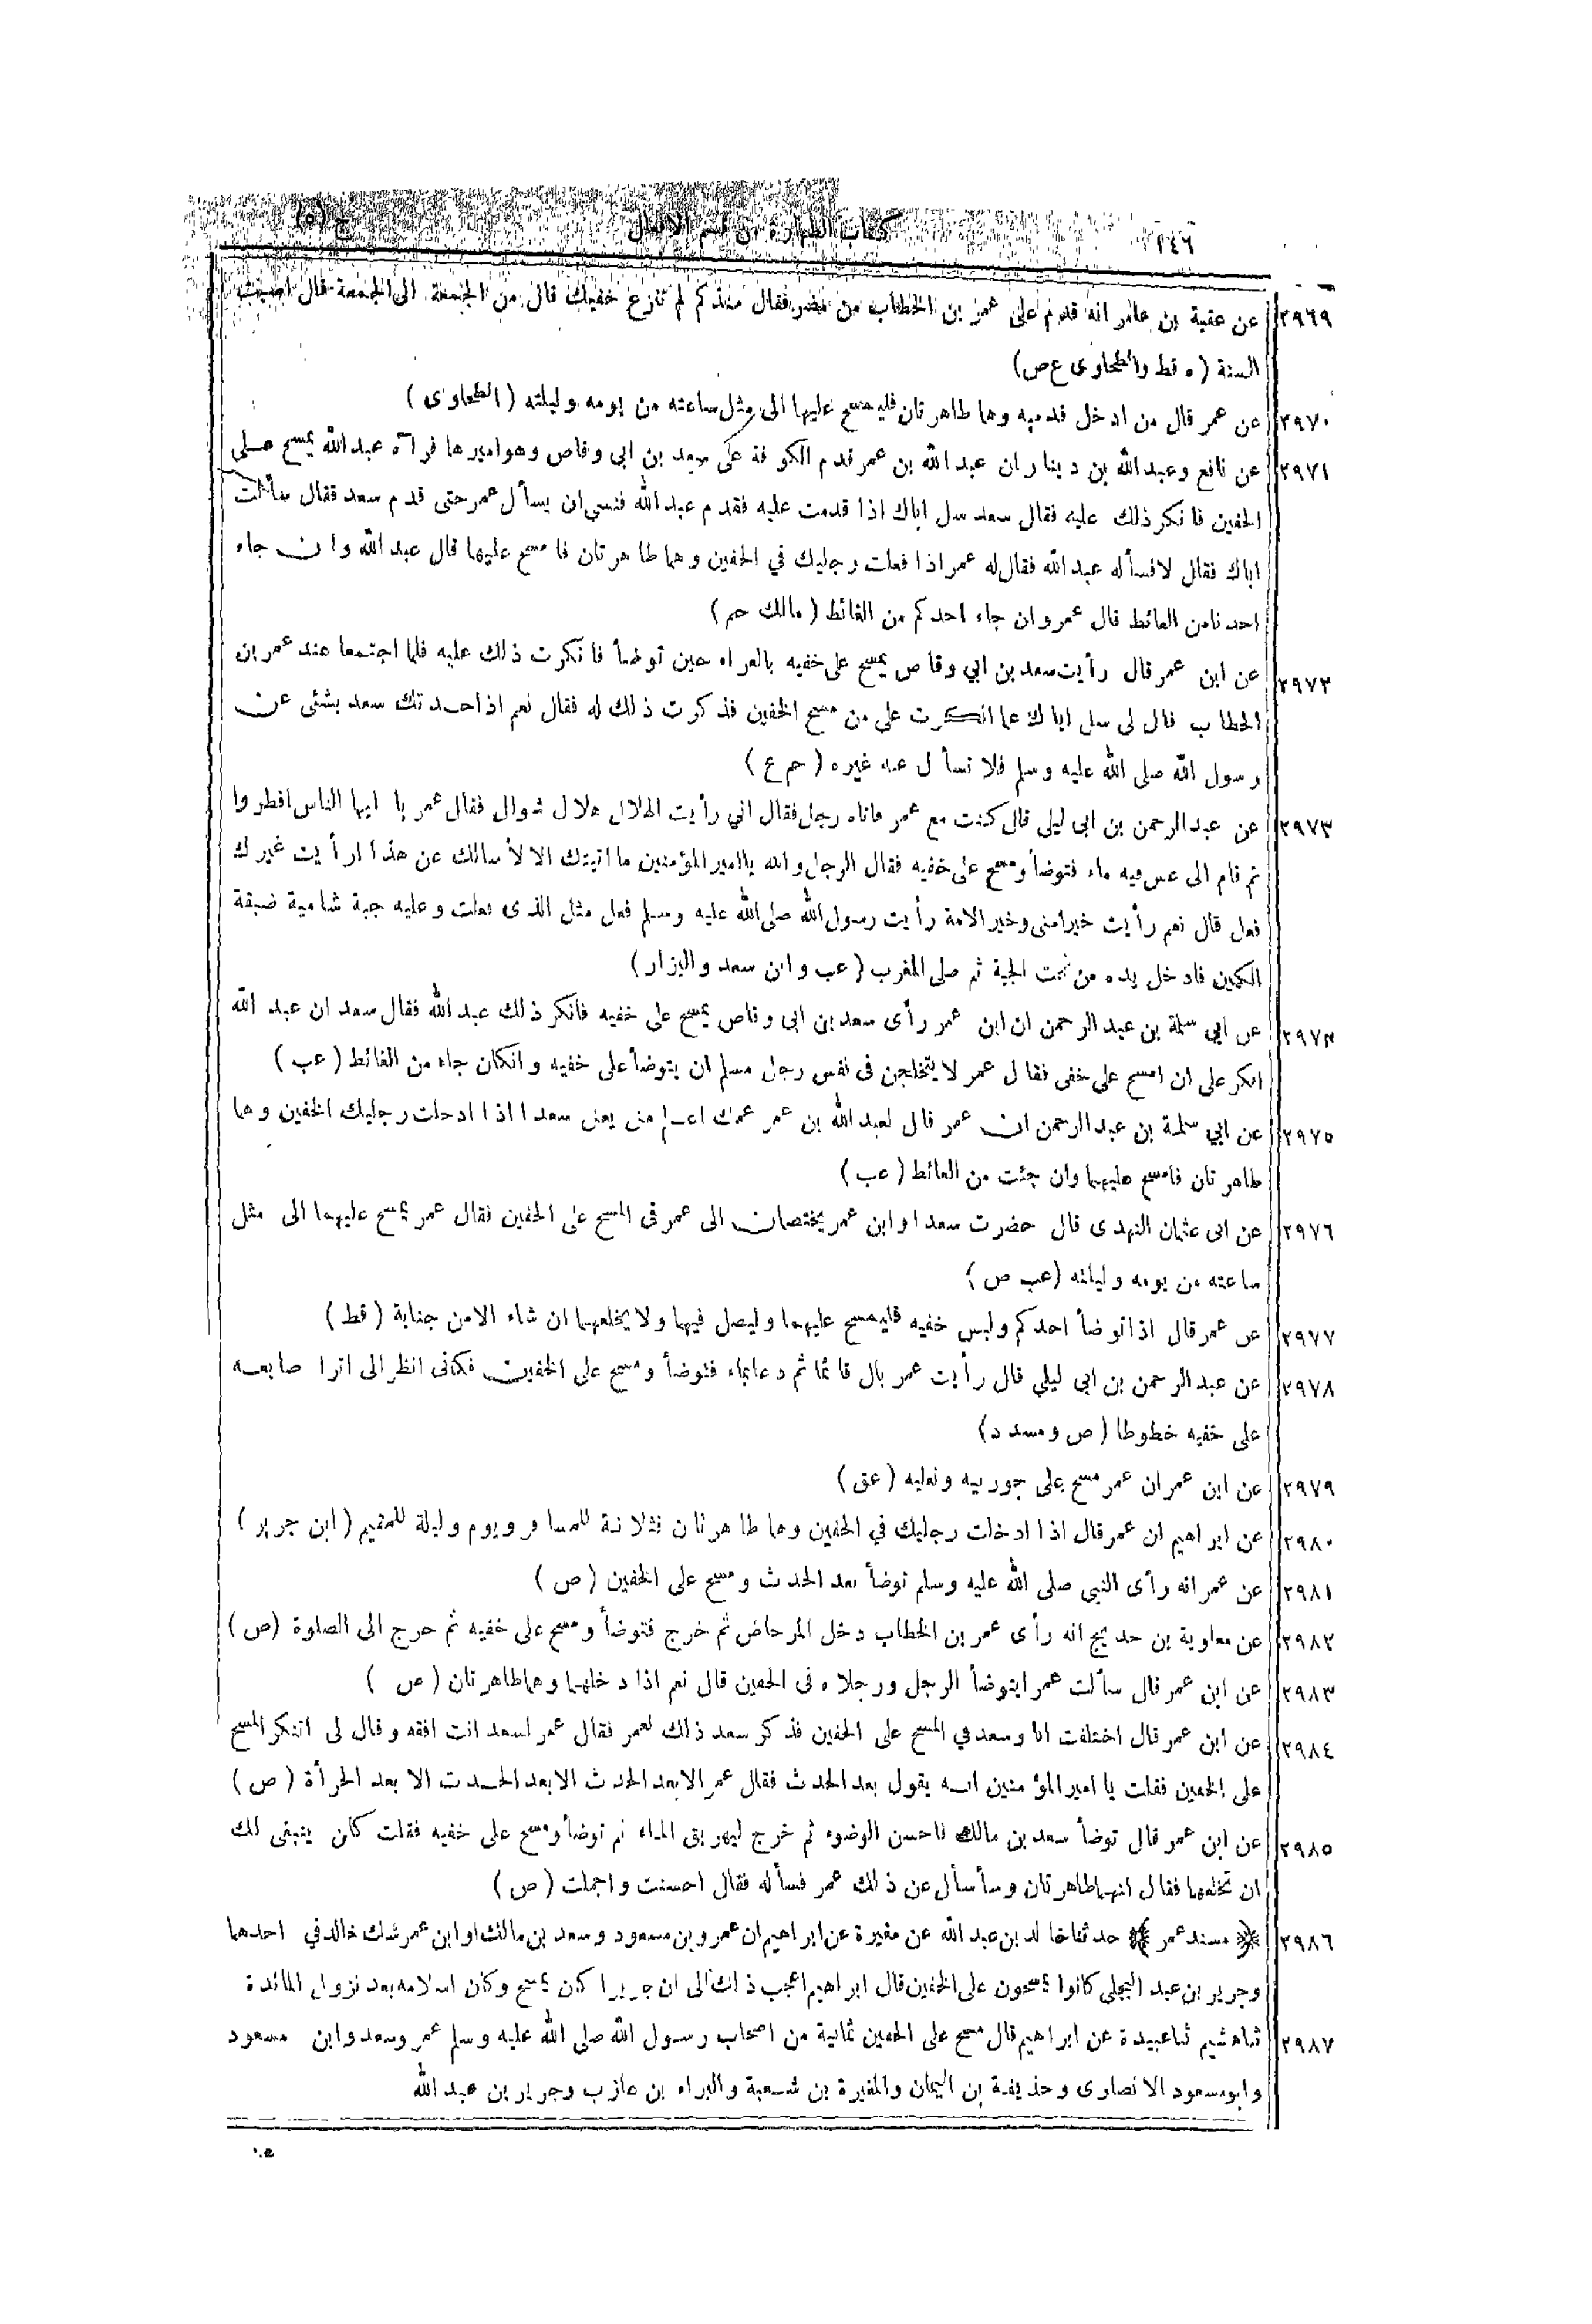 ١٤٦ كتاب الطهارة من قسم الافعال ج (٥)
٢٩٦٩ عن عقبة بن عامر انه قدم على عمر بن الخطاب من مصر فقال منذكم لم تنزع خفيك قال من الجمعة الى الجمعة قال اصبت
السنة (ه قط والطحاوى ع ص)
٢٩٧٠ عن عمر قال من ادخل قدميه وهما طاهرتان فليمسح عليها الى مثل ساعته من يومه وليلته (الطحاوى)
٢٩٧١ عن نافع وعبد الله بن دينار ان عبد الله بن عمر قدم الكوفة على سعد بن ابى وقاص وهو اميرها فرآه عبد الله يمسح على
الخفين فانكر ذلك عليه فقال سعد سل اباك اذا قدمت عليه فقدم عبد الله فنسى ان يسأل عمر حتى قدم سعد فقال سألت
اباك فقال لا فسأله عبد الله فقال له عمر اذا فعلت رجليك في الخفين وهما طاهرتان فامسح عليها قال عبد الله وان جاء
احدنا من الغائط قال عمر وان جاء احدكم من الغائط (مالك حم)
٢٩٧٢ عن ابن عمر قال رأيت سعد بن ابي وقاص يمسح على خفيه بالعراء حين توضأ فانكرت ذلك عليه فلما اجتمعا عند عمر بن
الخطاب قال لى سل اباك عما انكرت على من مسح الخفين فذكرت ذلك له فقال نعم اذا حدثك سعد بشئى عن
رسول الله صلى الله عليه وسلم فلا تسأل عنه غيره (حم ع)
٢٩٧٣ عن عبد الرحمن بن ابى ليلى قال كنت مع عمر فاتاه رجل فقال اني رأيت الهلال هلال شوال فقال عمر يا ايها الناس افطروا
ثم قام الى عس فيه ماء فتوضأ ومسح على خفيه فقال الرجل والله يا امير المؤمنين ما اتيتك الا لأسالك عن هذا ارأيت غيرك
فعل قال نعم رأيت خيرا منى وخير الامة رأيت رسول الله صلى الله عليه وسلم فعل مثل الذى فعلت وعليه جبة شامية ضيقة
الكمين فادخل يده من تحت الجبة ثم صلى المغرب (عب وابن سعد والبزار)
٢٩٧٤ عن ابي سلمة بن عبد الرحمن ان ابن عمر رأى سعد بن ابى وقاص يمسح على خفيه فانكر ذلك عبد الله فقال سعد ان عبد الله
انكر على ان امسح على خفى فقال عمر لا يتخلجن فى نفس رجل مسلم ان يتوضأ على خفيه وانكان جاء من الغائط (عب)
٢٩٧٥ عن ابي سلمة بن عبد الرحمن ان عمر قال لعبد الله بن عمر عمك اعلم منى يعنى سعدا اذا ادخلت رجليك الخفين وهما
طاهرتان فامسح عليهما وان جئت من الغائط (عب)
٢٩٧٦ عن ابى عثمان النهدى قال حضرت سعدا وابن عمر يختصمان الى عمر فى المسح على الخفين فقال عمر يمسح عليهما الى مثل
ساعته من يومه وليلته (عب ص)
٢٩٧٧ عن عمر قال اذا توضأ احدكم ولبس خفيه فليمسح عليهما وليصل فيها ولا يخلعهما ان شاء الا من جنابة (قط)
٢٩٧٨ عن عبد الرحمن بن ابى ليلي قال رأيت عمر بال قائما ثم دعا بماء فتوضأ ومسح على الخفين فكأنى انظر الى اثر اصابعه
على خفيه خطوطا (ص ومسدد)
٢٩٧٩ عن ابن عمر ان عمر مسح على جوربيه ونعليه (عق)
٢٩٨٠ عن ابراهيم ان عمر قال اذا ادخلت رجليك في الخفين وهما طاهرتان فثلاثة للمسافر ويوم وليلة للمقيم (ابن جرير)
٢٩٨١ عن عمر انه رأى النبى صلى الله عليه وسلم توضأ بعد الحدث ومسح على الخفين (ص)
٢٩٨٢ عن معاوية بن حديج انه رأى عمر بن الخطاب دخل المرحاض ثم خرج فتوضأ ومسح على خفيه ثم خرج الى الصلوة (ص)
٢٩٨٣ عن ابن عمر قال سألت عمر ايتوضأ الرجل ورجلاه فى الخفين قال نعم اذا دخلهما وهما طاهرتان (ص)
٢٩٨٤ عن ابن عمر قال اختلفت انا وسعد في المسح على الخفين فذكر سعد ذلك لعمر فقال عمر لسعد انت افقه وقال لى اتنكر المسح
على الخفين فقلت يا امير المؤمنين انه يقول بعد الحدث فقال عمر الا بعد الحدث الا بعد الحدث الا بعد الخرأة (ص)
٢٩٨٥ عن ابن عمر قال توضأ سعد بن مالك فاحسن الوضوء ثم خرج ليهريق الماء ثم توضأ ومسح على خفيه فقلت كان ينبغى لك
ان تخلعهما فقال انهما طاهرتان وسأسأل عن ذلك عمر فسأله فقال احسنت واجملت (ص)
٢٩٨٦ مسند عمر حدثنا خالد بن عبد الله عن مغيرة عن ابراهيم ان عمر وبن مسعود وسعد بن مالك او ابن عمر شك خالد في احدهما
وجرير بن عبد البجلى كانوا يمسحون على الخفين قال ابراهيم اعجب ذاك الى ان جريرا كان يمسح وكان اسلامه بعد نزول المائدة
٢٩٨٧ ثنا هشيم ثنا عبيدة عن ابراهيم قال مسح على الخفين ثمانية من اصحاب رسول الله صلى الله عليه وسلم عمر وسعد وابن مسعود
وابو مسعود الانصارى وحذيفة بن اليمان والمغيرة بن شعبة والبراء بن عازب وجرير بن عبد الله